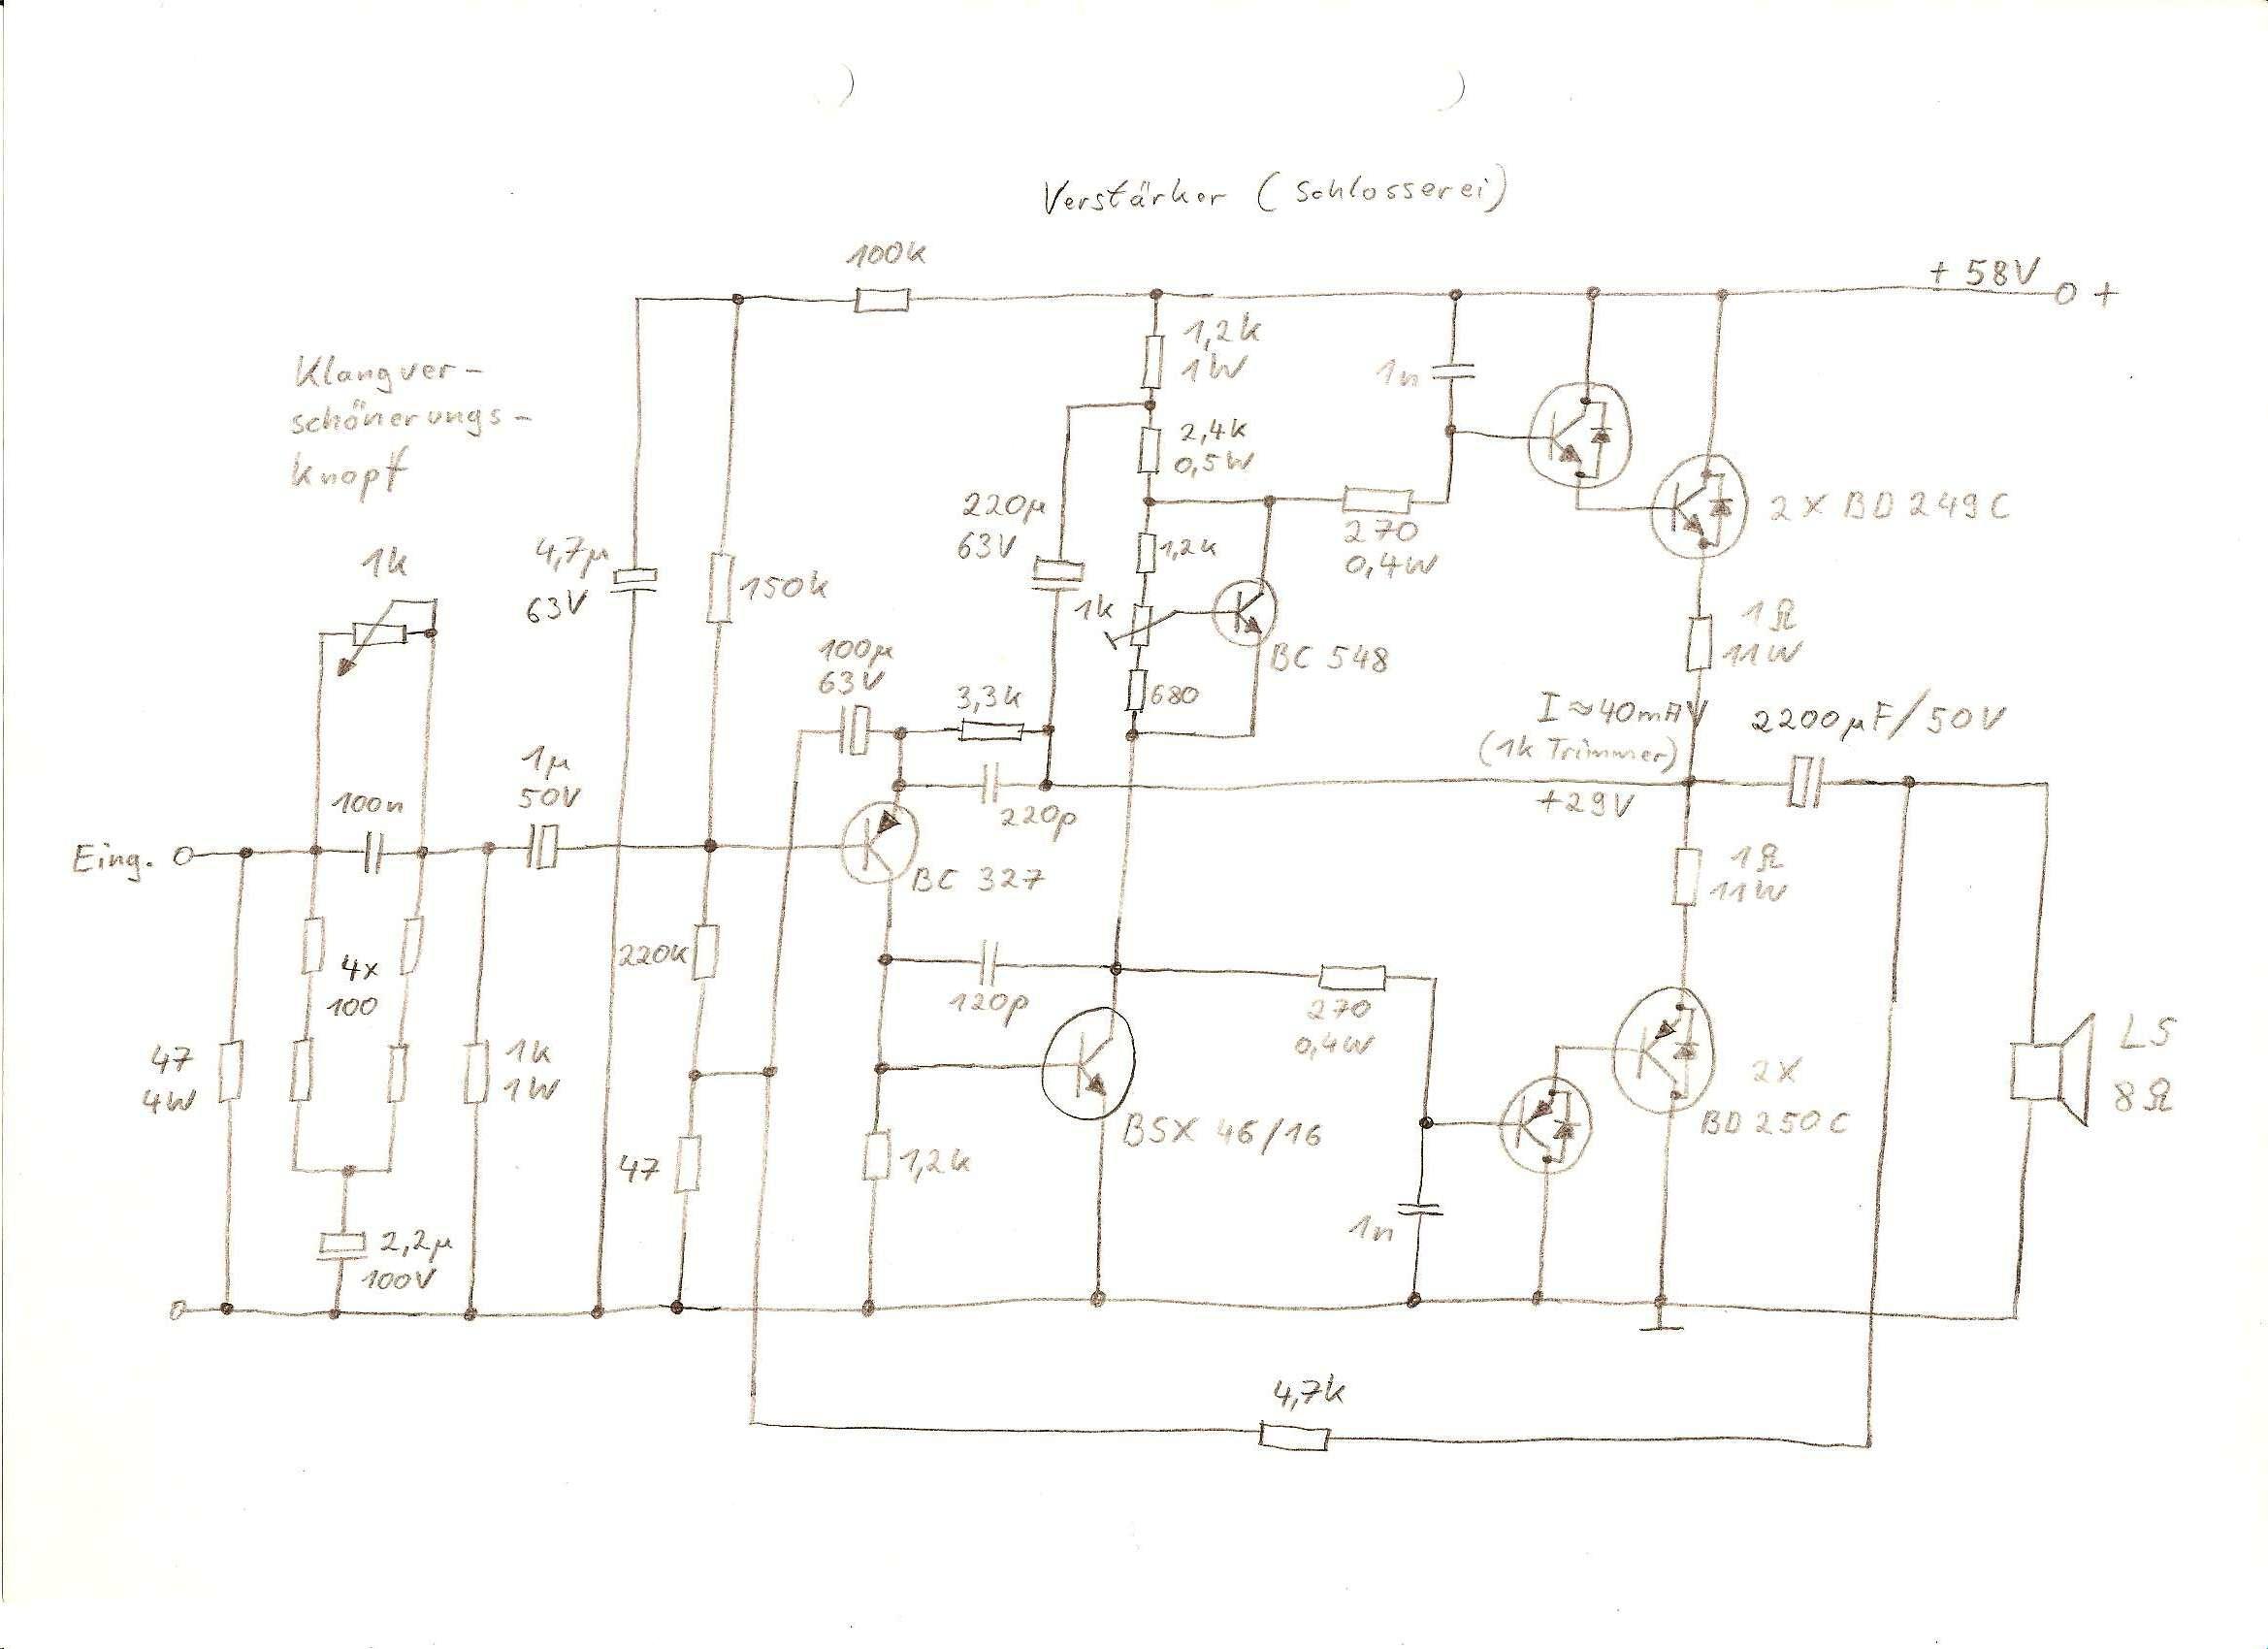 Verstärker (Schlosserei)
100k
+58V
+
1,2k
1W
1n
Klangver-
schönerungs-
knopf
2,4k
0,5W
220µ
63V
270
0,4W
2x BD 249C
1k
4,7µ
63V
150k
1,2k
1k
BC 548
680
1Ω
11W
100µ
63V
3,3k
I ≈ 40mA
(1k Trimmer)
2200µF/50V
+29V
1µ
50V
100n
220p
Eing.
BC 327
1Ω
11W
220k
4x
100
120p
270
0,4W
47
4W
1k
1W
LS
8Ω
2x
BD 250C
BSX 46/16
47
1,2k
1n
2,2µ
100V
4,7k